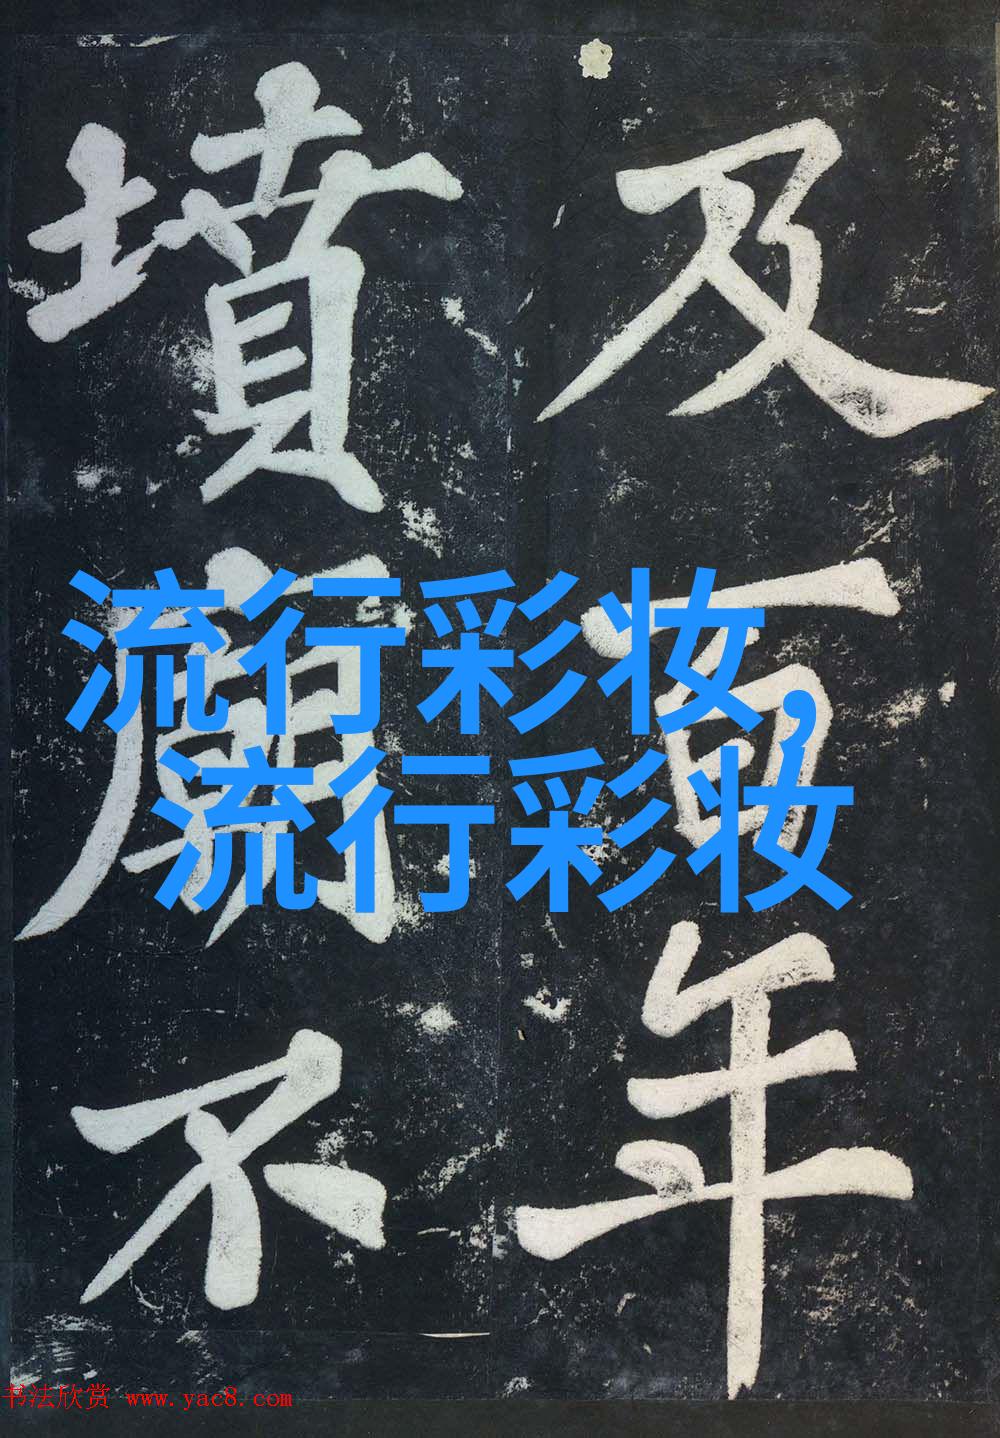 及百年
墳廟不
流行彩妆,
流行彩妆
书法欣赏 www.yac8.com